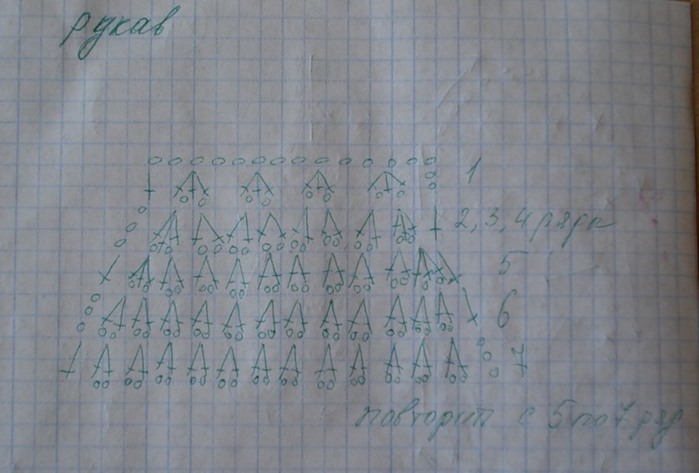 рукав
1
2,3,4 ряды
5
6
7
повторить с 5 по 7 ряд